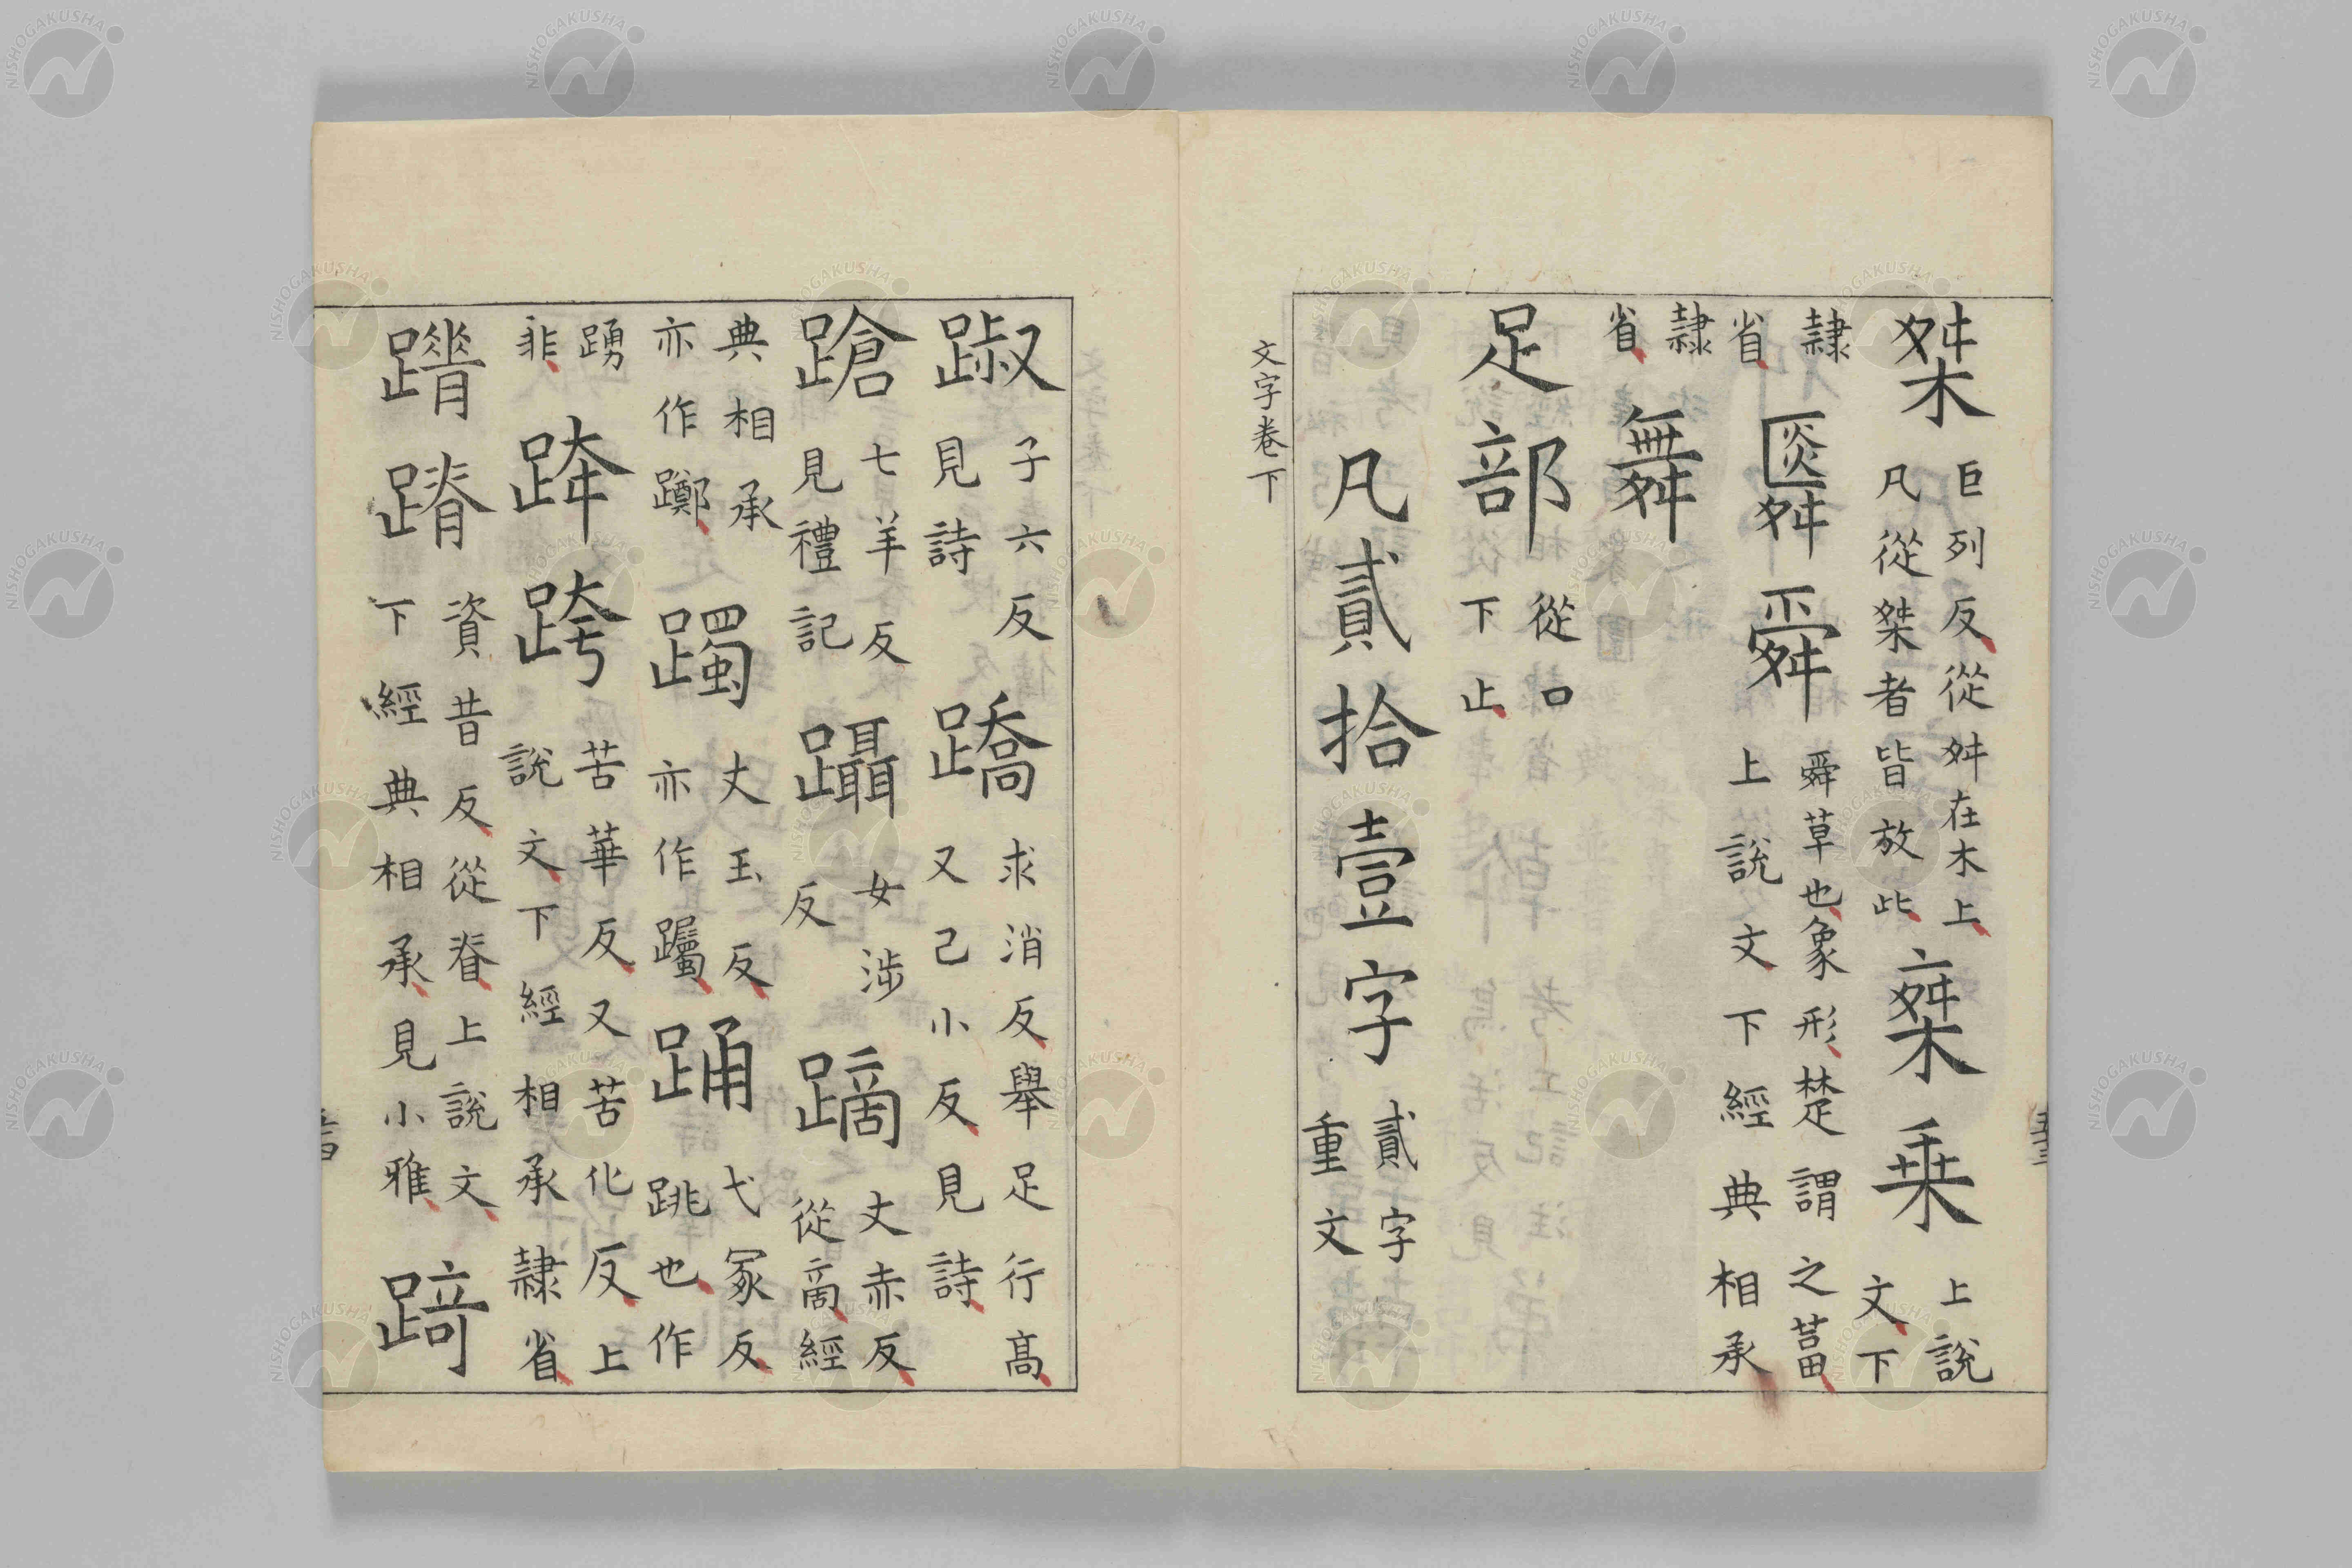 桀巨列反從舛在木上凡從桀者皆放此椉乗上說文下
隸省舜舜草也象形楚謂之葍上說文下經典相承
隸省舞
足部從口下止
凡貳拾壹字貳字重文
文字卷下
踧子六反見詩蹻求消反舉足行高又己小反見詩
蹌七羊反見禮記躡女涉反蹢丈赤反從啇經
典相承亦作躑躅丈玉反亦作躅踊弋冢反跳也作
踴非跨苦華反又苦化反上說文下經相承隸省
蹐資昔反從脊上說文下經典相承見小雅踦
NISHOGAKUSHA